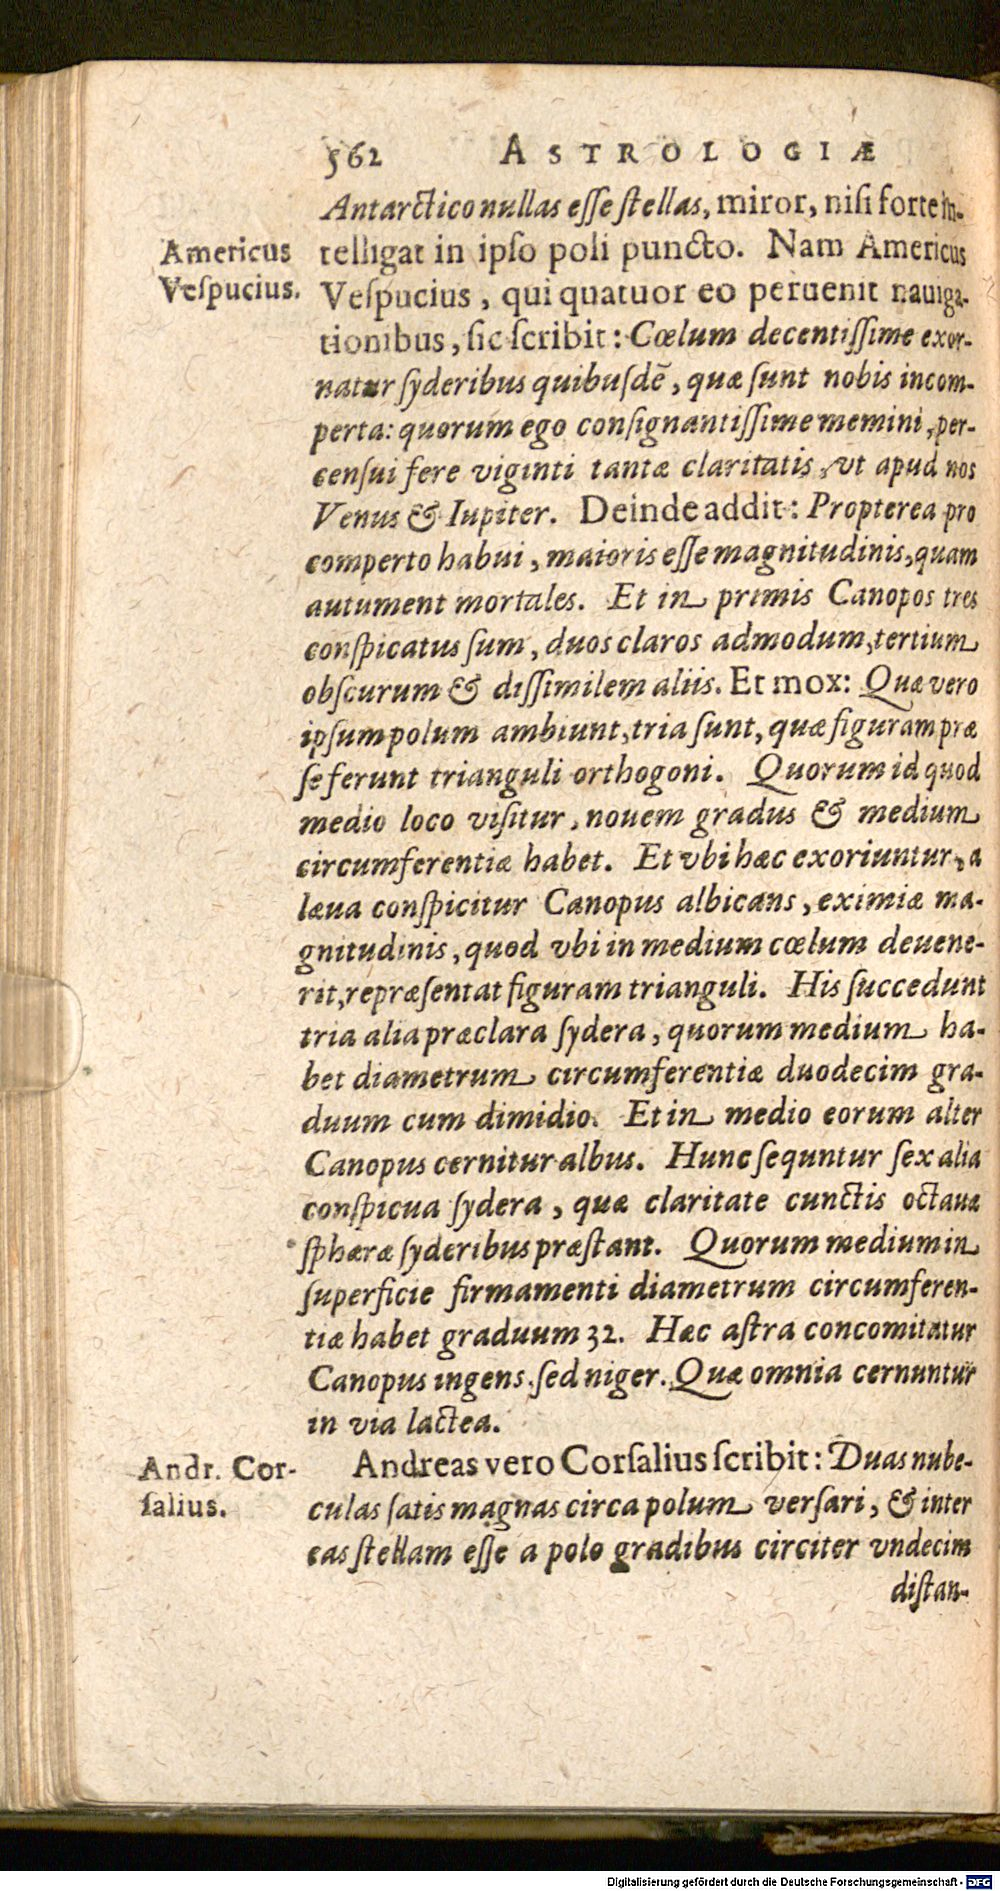 562 ASTROLOGIÆ
Antarctico nullas eſſe ſtellas, miror, niſi forte in-
Americus
telligat in ipſo poli puncto. Nam Americus
Veſpucius.
Veſpucius, qui quatuor eo peruenit nauiga-
tionibus, ſic ſcribit: Cœlum decentiſſime exor-
natur ſyderibus quibuſdē, quæ ſunt nobis incom-
perta: quorum ego conſignantiſſime memini, per-
cenſui fere viginti tantæ claritatis, vt apud nos
Venus & Iupiter. Deinde addit: Propterea pro
comperto habui, maioris eſſe magnitudinis, quam
autument mortales. Et in primis Canopos tres
conſpicatus ſum, duos claros admodum, tertium
obſcurum & diſſimilem aliis. Et mox: Quæ vero
ipſum polum ambiunt, tria ſunt, quæ figuram præ
ſe ferunt trianguli orthogoni. Quorum id quod
medio loco viſitur, nouem gradus & medium
circumferentiæ habet. Et vbi hæc exoriuntur, a
læua conſpicitur Canopus albicans, eximiæ ma-
gnitudinis, quod vbi in medium cœlum deuene-
rit, repræſentat figuram trianguli. His ſuccedunt
tria alia præclara ſydera, quorum medium ha-
bet diametrum circumferentiæ duodecim gra-
duum cum dimidio. Et in medio eorum alter
Canopus cernitur albus. Hunc ſequntur ſex alia
conſpicua ſydera, quæ claritate cunctis octauæ
ſphæræ ſyderibus præſtant. Quorum medium in
ſuperficie firmamenti diametrum circumferen-
tiæ habet graduum 32. Hæc aſtra concomitatur
Canopus ingens, ſed niger. Quæ omnia cernuntur
in via lactea.
Andr. Cor-
Andreas vero Corſalius ſcribit: Duas nube-
ſalius.
culas ſatis magnas circa polum verſari, & inter
eas ſtellam eſſe a polo gradibus circiter vndecim
diſtan-
Digitalisierung gefördert durch die Deutsche Forschungsgemeinschaft - DFG